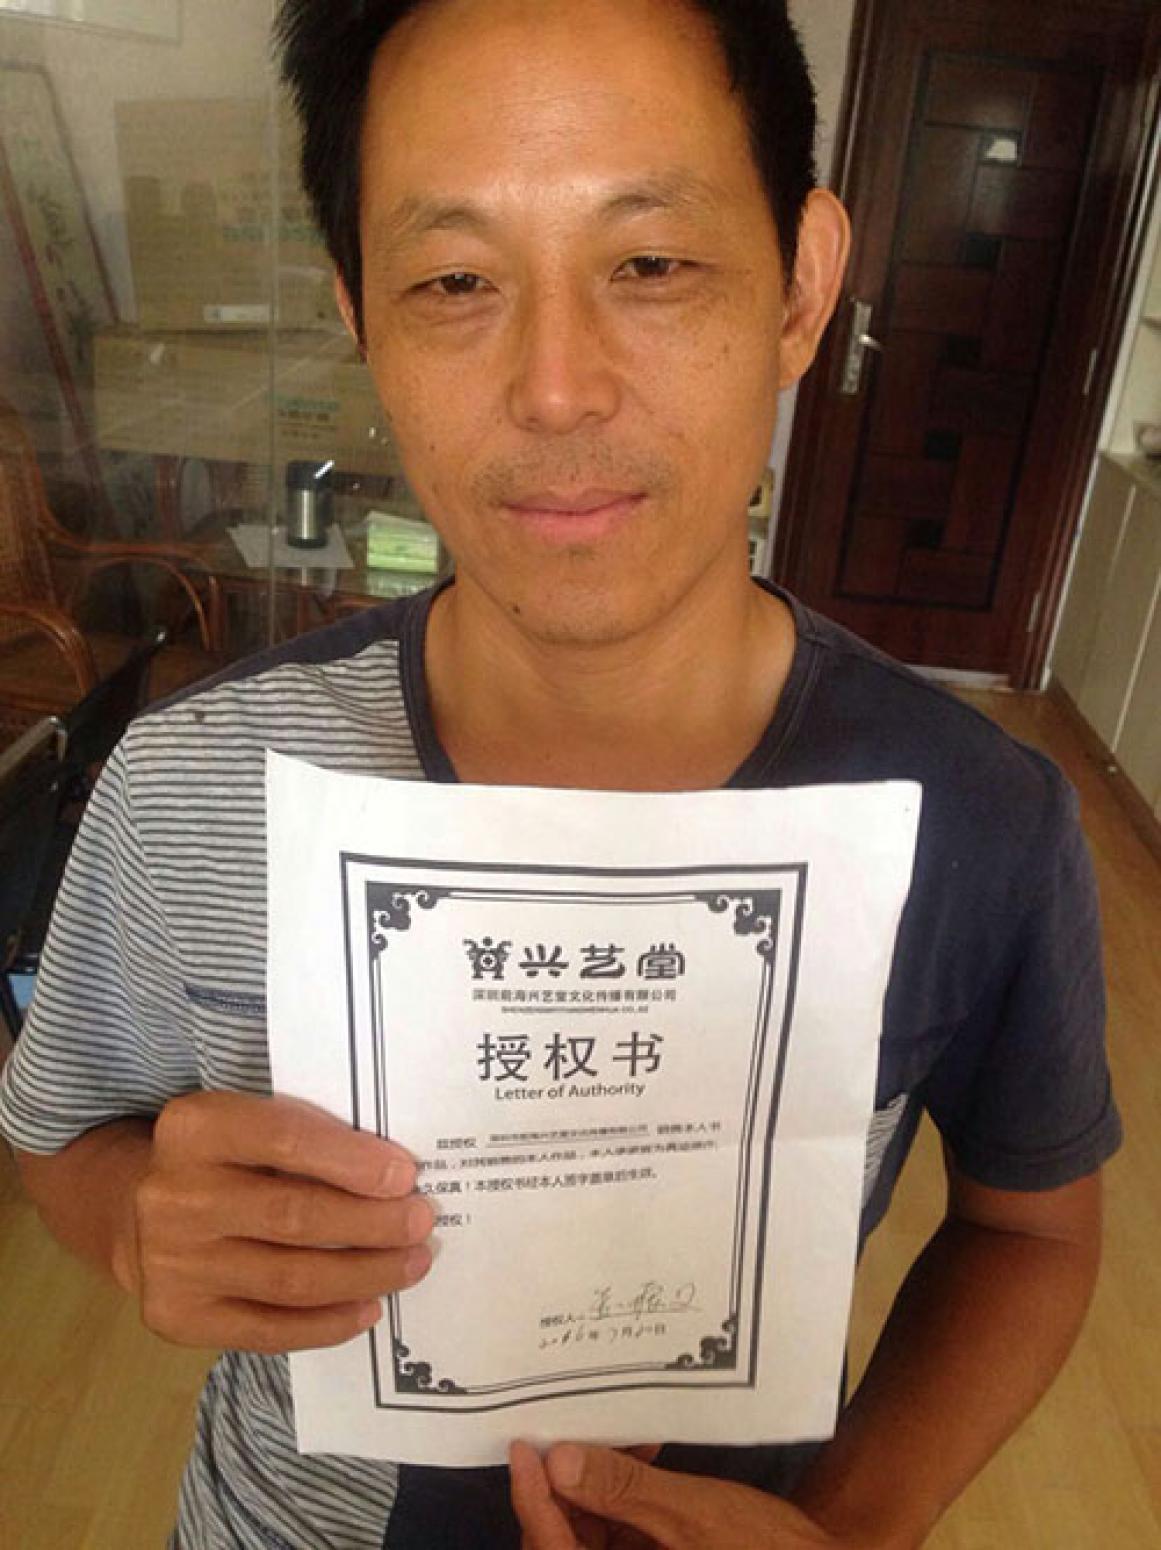 兴艺堂
深圳前海兴艺堂文化传播有限公司
授权书
Letter of Authority
兹授权 深圳市前海兴艺堂文化传播有限公司 销售本人书
作品，对其销售的本人作品，本人承诺皆为真迹原作，
久保真！本授权书经本人签字盖章后生效。
授权！
授权人：
2016年7月20日